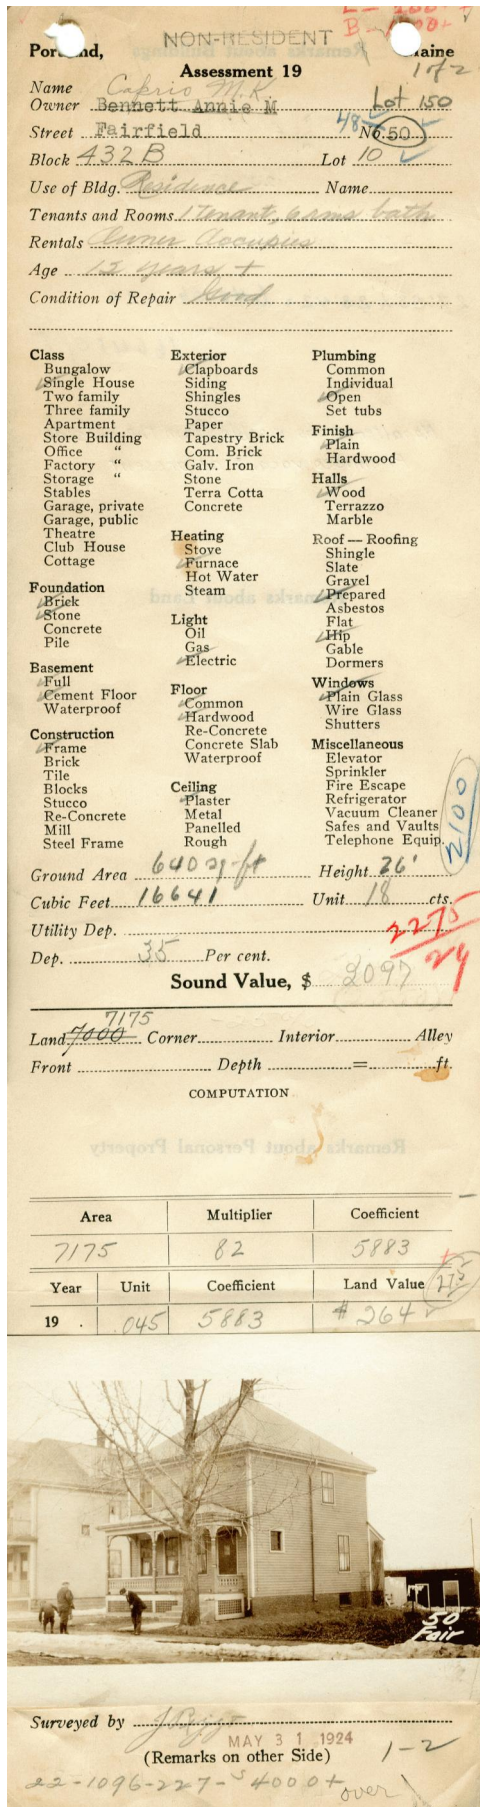 NON-RESIDENT
Portland, Maine
Assessment 19
1 of 2
Name Caprio M.K.
Owner Bennett Annie M Lot 150
Street Fairfield 48 No. 50
Block 432 B Lot 10
Use of Bldg. Residence Name
Tenants and Rooms 1 Tenant, 6 rms bath
Rentals Owner Occupies
Age 15 years +
Condition of Repair Good
Class
Bungalow
Single House
Two family
Three family
Apartment
Store Building
Office "
Factory "
Storage "
Stables
Garage, private
Garage, public
Theatre
Club House
Cottage
Foundation
Brick
Stone
Concrete
Pile
Basement
Full
Cement Floor
Waterproof
Construction
Frame
Brick
Tile
Blocks
Stucco
Re-Concrete
Mill
Steel Frame
Exterior
Clapboards
Siding
Shingles
Stucco
Paper
Tapestry Brick
Com. Brick
Galv. Iron
Stone
Terra Cotta
Concrete
Heating
Stove
Furnace
Hot Water
Steam
Light
Oil
Gas
Electric
Floor
Common
Hardwood
Re-Concrete
Concrete Slab
Waterproof
Ceiling
Plaster
Metal
Panelled
Rough
Plumbing
Common
Individual
Open
Set tubs
Finish
Plain
Hardwood
Halls
Wood
Terrazzo
Marble
Roof — Roofing
Shingle
Slate
Gravel
Prepared
Asbestos
Flat
Hip
Gable
Dormers
Windows
Plain Glass
Wire Glass
Shutters
Miscellaneous
Elevator
Sprinkler
Fire Escape
Refrigerator
Vacuum Cleaner
Safes and Vaults
Telephone Equip.
2100
Ground Area 640 sq-ft Height 26'
Cubic Feet 16641 Unit 18 cts.
Utility Dep.
2275
24
Dep. 35 Per cent.
Sound Value, $ 2097
7175
Land 7000 Corner Interior Alley
Front Depth = ft.
COMPUTATION
Remarks about Personal Property
Area Multiplier Coefficient
7175 82 5883
Year Unit Coefficient Land Value
19 . .045 5883 $ 264
50
Fair
Surveyed by
MAY 31 1924
(Remarks on other Side) 1-2
22-1096-227-$4000+
over